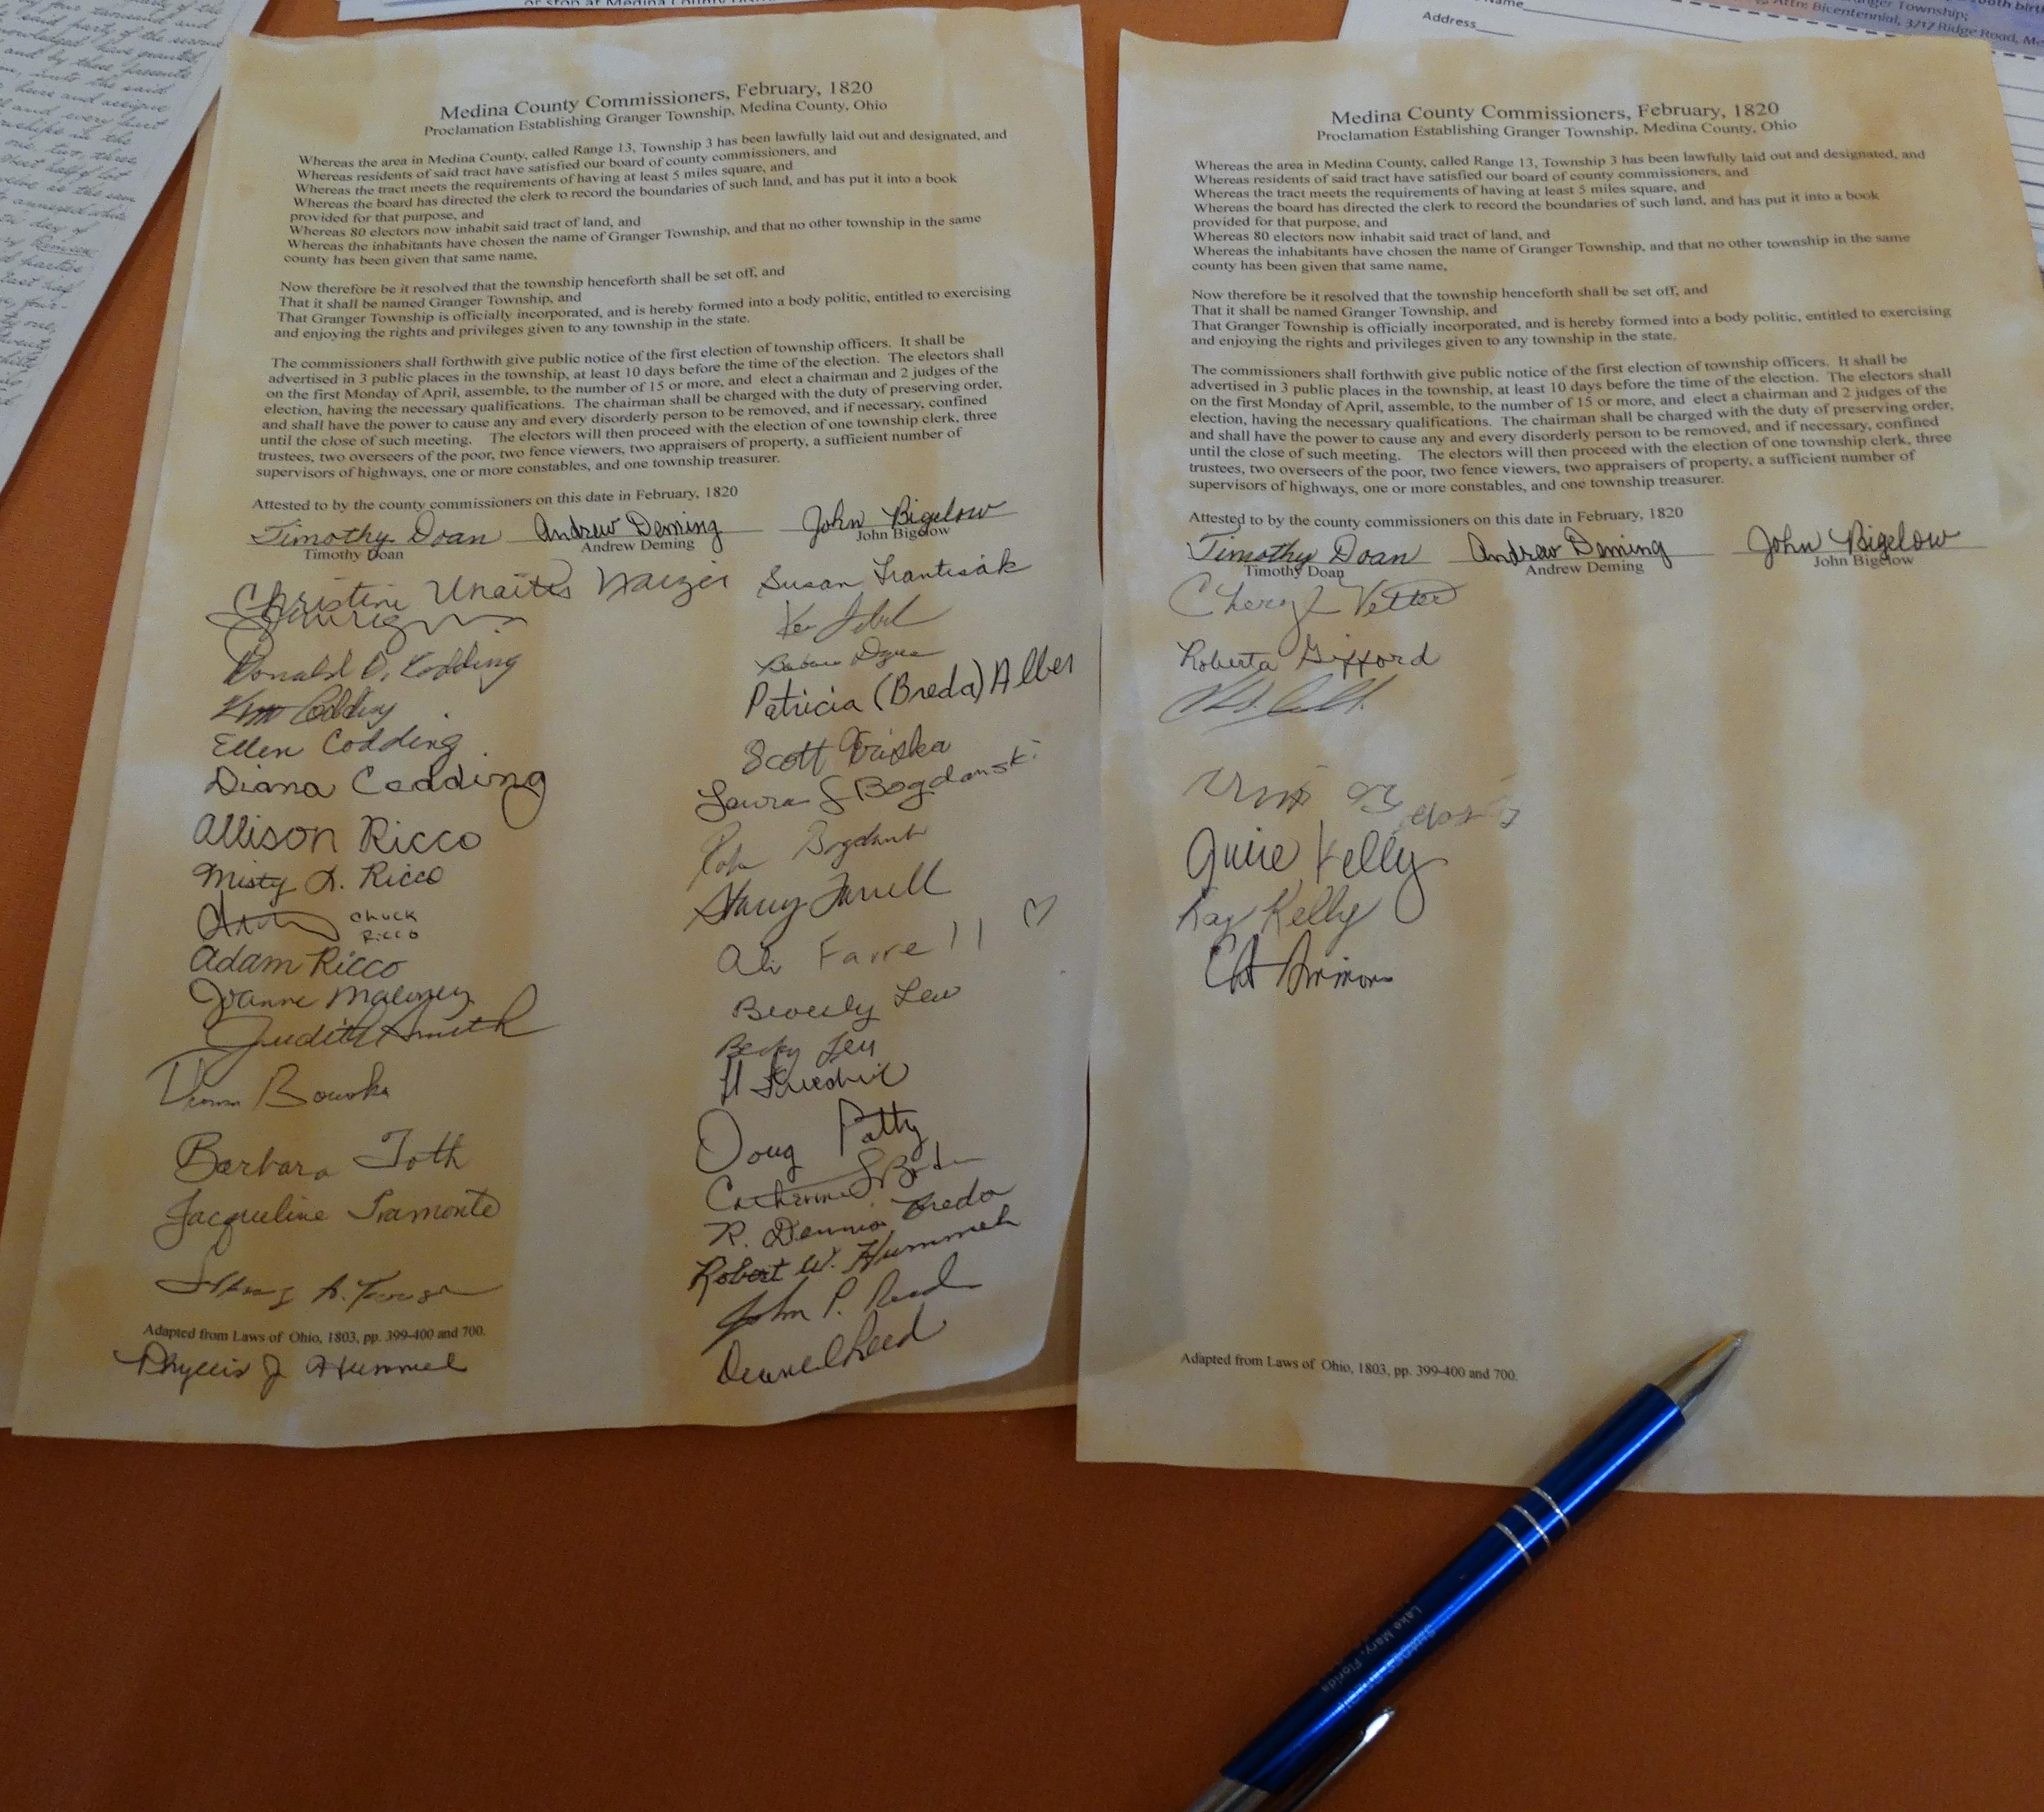 Medina County Commissioners, February, 1820
Proclamation Establishing Granger Township, Medina County, Ohio
Whereas the area in Medina County, called Range 13, Township 3 has been lawfully laid out and designated, and
Whereas residents of said tract have satisfied our board of county commissioners, and
Whereas the tract meets the requirements of having at least 5 miles square, and
Whereas the board has directed the clerk to record the boundaries of such land, and has put it into a book
provided for that purpose, and
Whereas 80 electors now inhabit said tract of land, and
Whereas the inhabitants have chosen the name of Granger Township, and that no other township in the same
county has been given that same name,
Now therefore be it resolved that the township henceforth shall be set off, and
That it shall be named Granger Township, and
That Granger Township is officially incorporated, and is hereby formed into a body politic, entitled to exercising
and enjoying the rights and privileges given to any township in the state.
The commissioners shall forthwith give public notice of the first election of township officers. It shall be
advertised in 3 public places in the township, at least 10 days before the time of the election. The electors shall
on the first Monday of April, assemble, to the number of 15 or more, and elect a chairman and 2 judges of the
election, having the necessary qualifications. The chairman shall be charged with the duty of preserving order,
and shall have the power to cause any and every disorderly person to be removed, and if necessary, confined
until the close of such meeting. The electors will then proceed with the election of one township clerk, three
trustees, two overseers of the poor, two fence viewers, two appraisers of property, a sufficient number of
supervisors of highways, one or more constables, and one township treasurer.
Attested to by the county commissioners on this date in February, 1820
Timothy Doan Andrew Deming John Bigelow
Timothy Doan Andrew Deming John Bigelow
Christine
Donald D. Codding
Codding
Ellen Codding
Diana Codding
Allison Ricco
Misty L. Ricco
Chuck
Ricco
Adam Ricco
Joanne Maloney
Judith Smith
Barbara Toth
Jacqueline Tramonte
Adapted from Laws of Ohio, 1803, pp. 399-400 and 700.
Phyllis J Hummel
Susan Frantisak
Ken
Barbara
Patricia (Breda) Alber
Scott Friska
Laura S Bogdanski
Stacy Farrell
Ali Farrell
Beverly Leu
Becky Leu
Doug Patty
Catherine
R. Dennis Breda
Robert W. Hummel
John P. Reed
Reed
Medina County Commissioners, February, 1820
Proclamation Establishing Granger Township, Medina County, Ohio
Whereas the area in Medina County, called Range 13, Township 3 has been lawfully laid out and designated, and
Whereas residents of said tract have satisfied our board of county commissioners, and
Whereas the tract meets the requirements of having at least 5 miles square, and
Whereas the board has directed the clerk to record the boundaries of such land, and has put it into a book
provided for that purpose, and
Whereas 80 electors now inhabit said tract of land, and
Whereas the inhabitants have chosen the name of Granger Township, and that no other township in the same
county has been given that same name,
Now therefore be it resolved that the township henceforth shall be set off, and
That it shall be named Granger Township, and
That Granger Township is officially incorporated, and is hereby formed into a body politic, entitled to exercising
and enjoying the rights and privileges given to any township in the state.
The commissioners shall forthwith give public notice of the first election of township officers. It shall be
advertised in 3 public places in the township, at least 10 days before the time of the election. The electors shall
on the first Monday of April, assemble, to the number of 15 or more, and elect a chairman and 2 judges of the
election, having the necessary qualifications. The chairman shall be charged with the duty of preserving order,
and shall have the power to cause any and every disorderly person to be removed, and if necessary, confined
until the close of such meeting. The electors will then proceed with the election of one township clerk, three
trustees, two overseers of the poor, two fence viewers, two appraisers of property, a sufficient number of
supervisors of highways, one or more constables, and one township treasurer.
Attested to by the county commissioners on this date in February, 1820
Timothy Doan Andrew Deming John Bigelow
Timothy Doan Andrew Deming John Bigelow
Cheryl Vetter
Roberta Gifford
Kelly
Kay Kelly
Adapted from Laws of Ohio, 1803, pp. 399-400 and 700.
Granger Township;
Attn: Bicentennial, 3717 Ridge Road,
Name
Address
Lake Mary, Florida